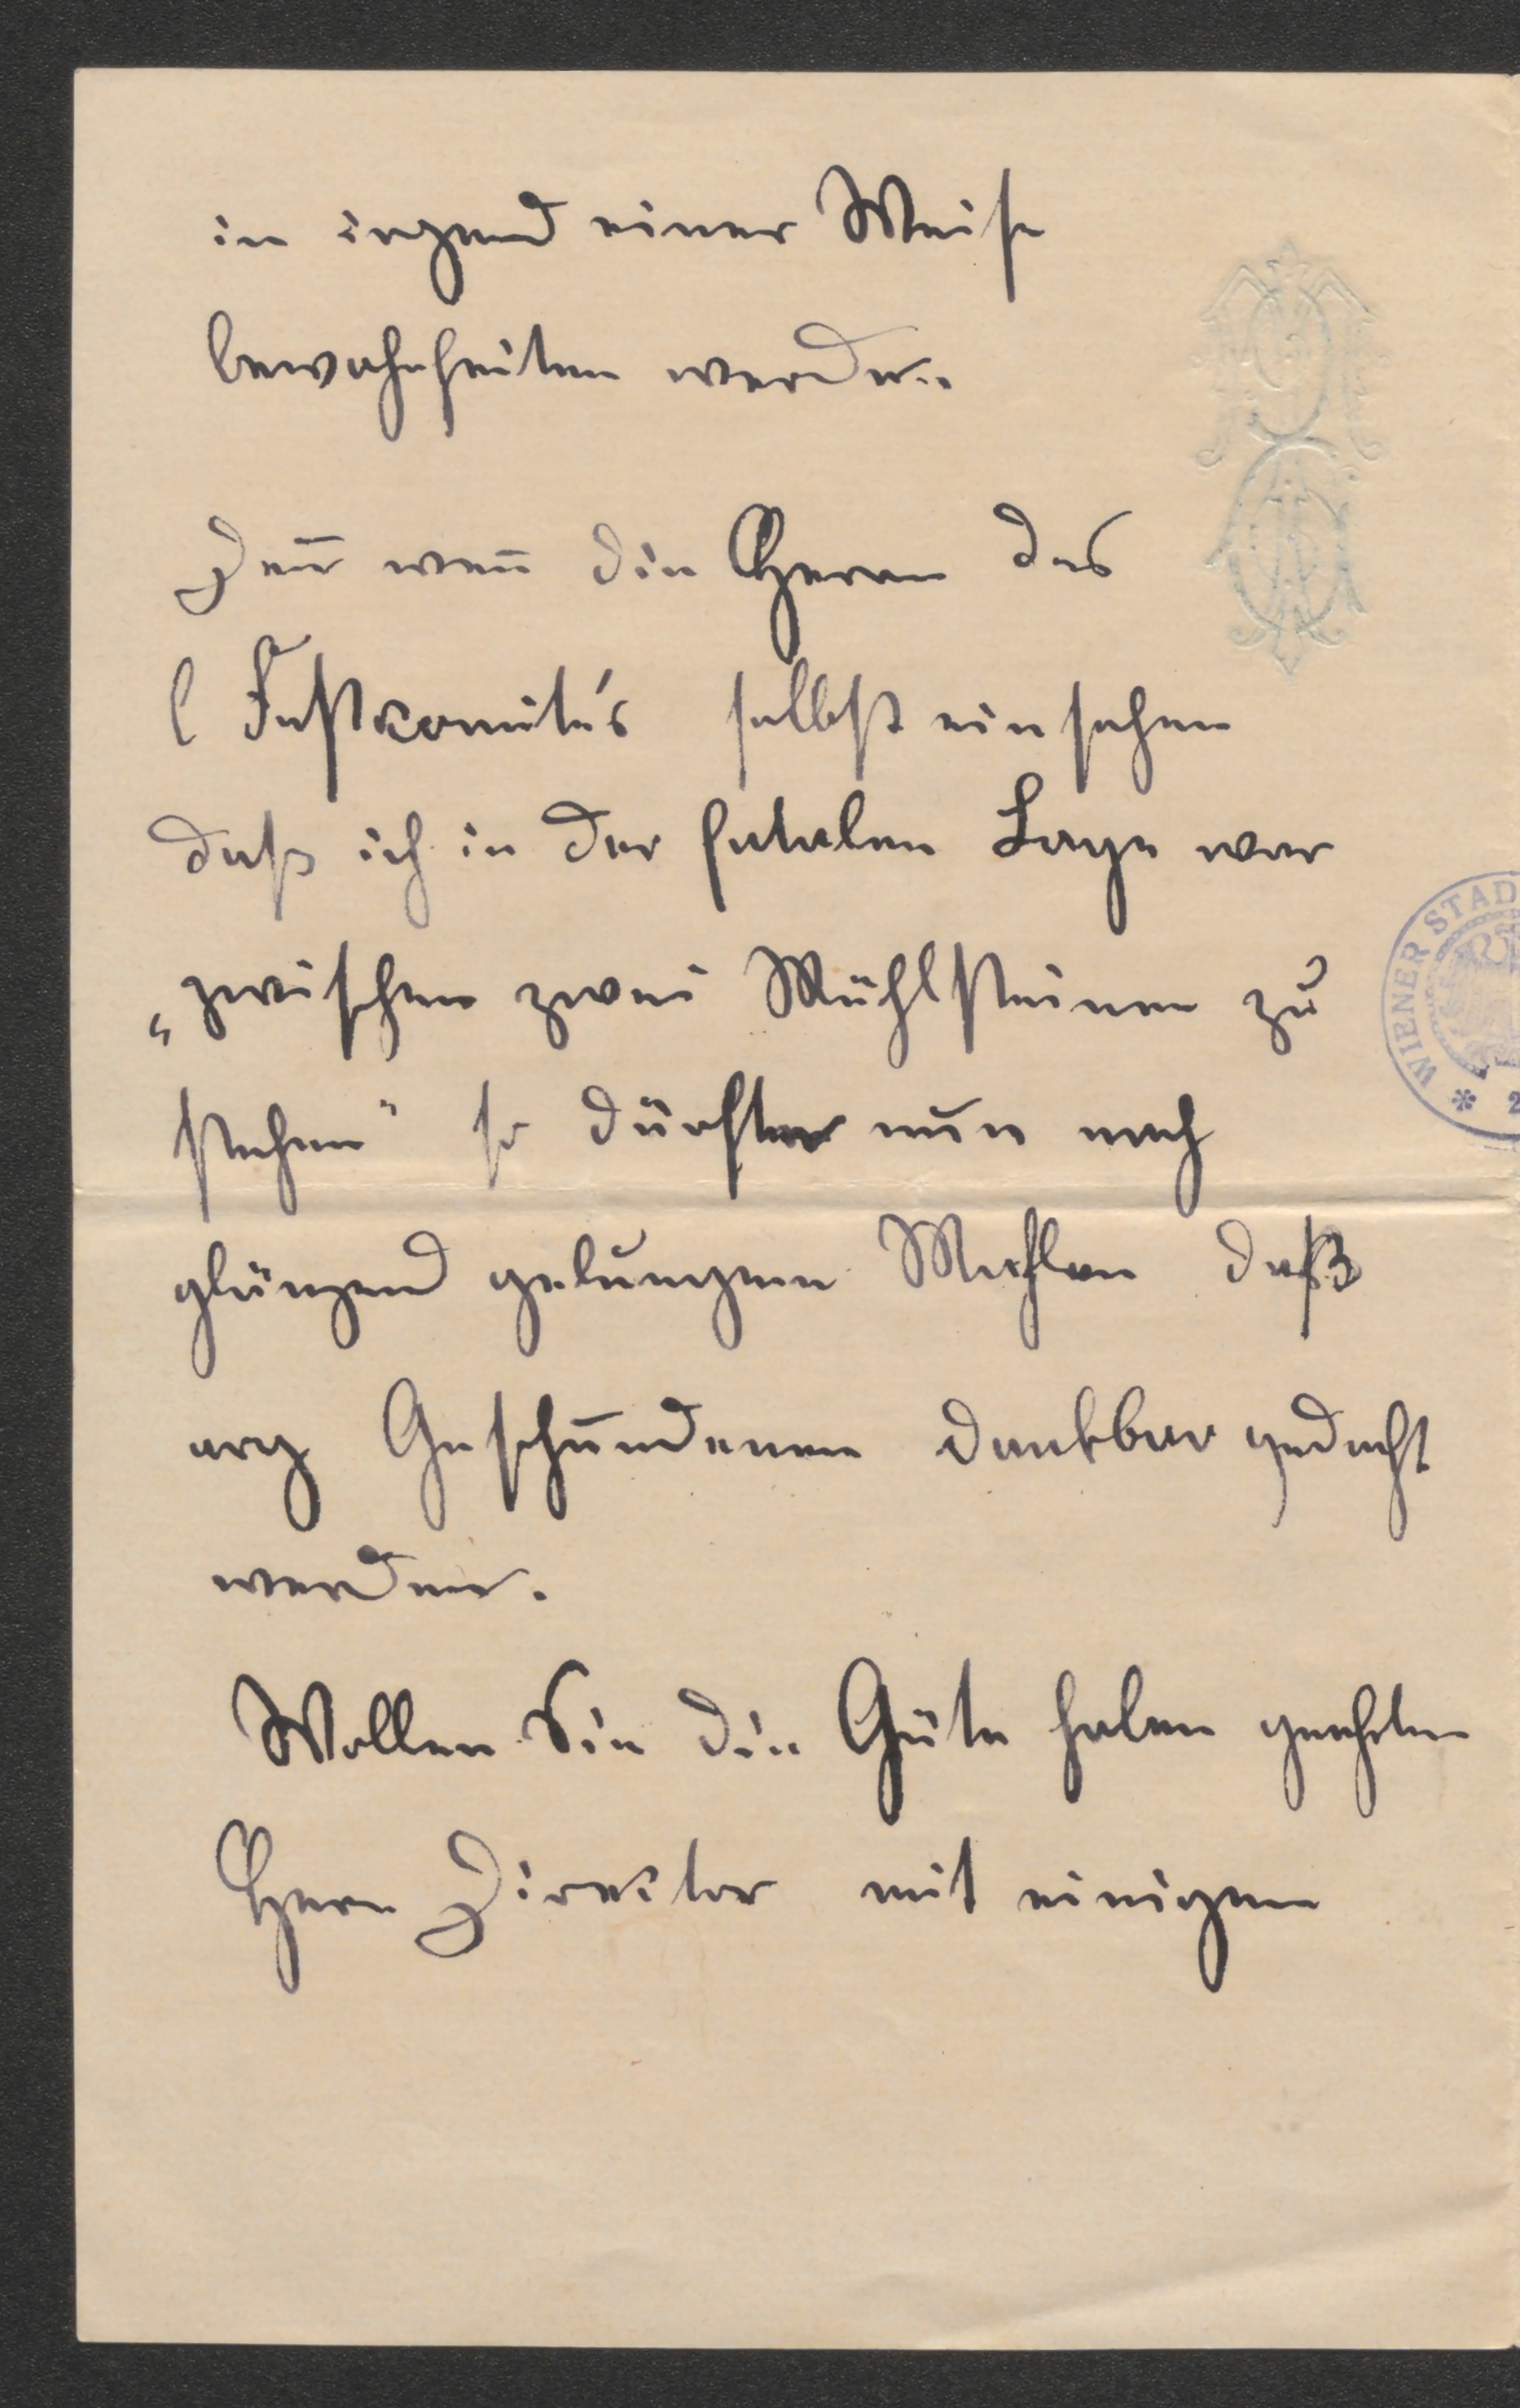 in irgend einer Weise
bewahrheiten werden
Den̄ wen̄ die Herren des
l Festkomité's selbst einsehen
daß ich in der fatalen Lage war
„zwischen zwei Mühlsteinen zu
stehen" so dürften nun nach
glänzend gelungenen Mahlen daß
arg Geschundenen dankbar gedacht
werden.
Wollen Sie die Güte haben geehrten
Herrn Direktor mit einigen
WIENER STAD
* 2